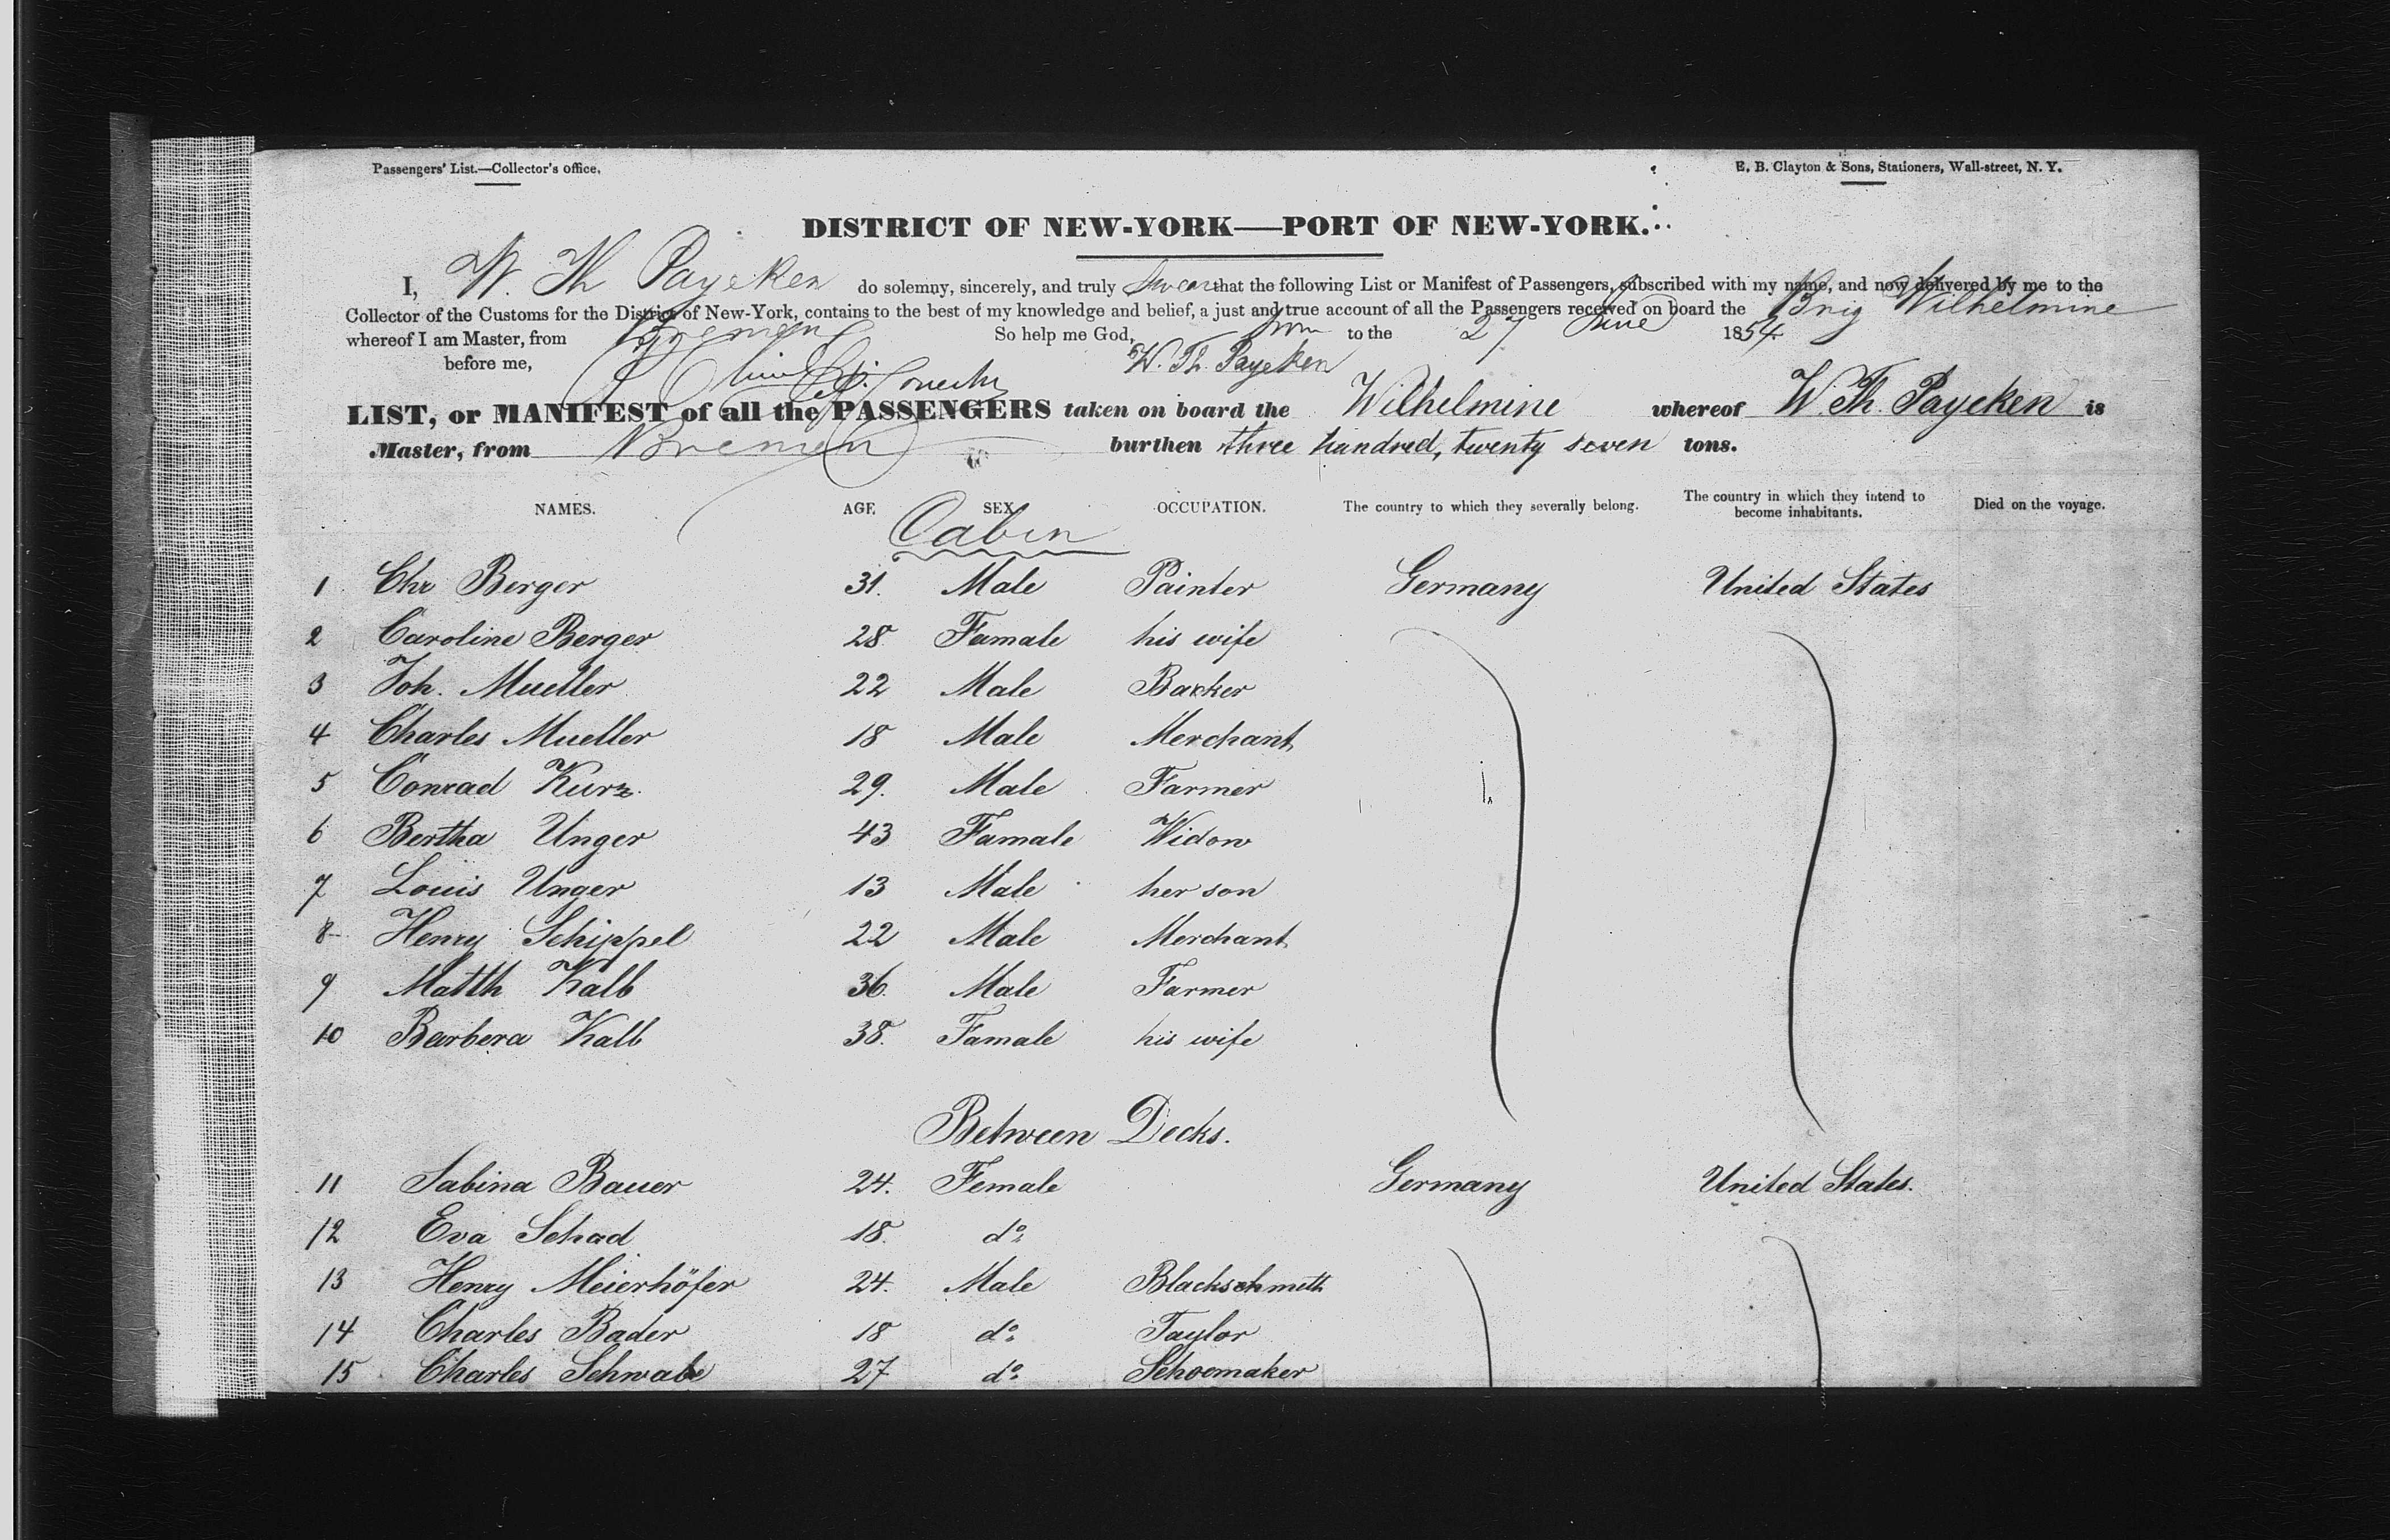 Passengers' List.—Collector's office. E. B. Clayton & Sons, Stationers, Wall-street, N. Y.
DISTRICT OF NEW-YORK—PORT OF NEW-YORK.
I, W. Th Payeken do solemny, sincerely, and truly swear that the following List or Manifest of Passengers, subscribed with my name, and now delivered by me to the
Collector of the Customs for the District of New-York, contains to the best of my knowledge and belief, a just and true account of all the Passengers received on board the Brig Wilhelmine
whereof I am Master, from Bremen So help me God, to the 27 June 1854.
before me, W. Th. Payeken
LIST, or MANIFEST of all the PASSENGERS taken on board the Wilhelmine whereof W. Th. Payeken is
Master, from Bremen burthen three hundred, twenty seven tons.
NAMES. AGE SEX OCCUPATION. The country to which they severally belong. The country in which they intend to become inhabitants. Died on the voyage.
Cabin
1 Chr Berger 31. Male Painter Germany United States
2 Caroline Berger 28 Famale his wife
3 Joh. Mueller 22 Male Backer
4 Charles Mueller 18 Male Merchant
5 Conrad Kurz. 29. Male Farmer
6 Bertha Unger 43 Famale Widow
7 Louis Unger 13 Male her son
8 Henry Schippel 22 Male Merchant
9 Matth Kalb 36. Male Farmer
10 Barbera Kalb 38. Famale his wife
Between Decks.
11 Sabina Bauer 24. Female Germany United States.
12 Eva Schad 18. do
13 Henry Meierhöfer 24. Male Blackschmeth
14 Charles Bader 18 do Taylor
15 Charles Schwabe 27 do Schoemaker